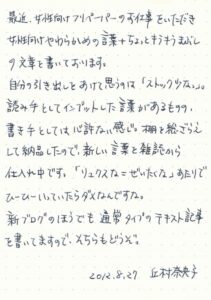 最近、女性向けフリーペーパーのお仕事をいただき
女性向けやわらかめの言葉+ちょっとキラキラまぶし
の文章を書いております。
自分の引き出しをあけて思うのは「ストック少なっ」。
読み手としてインプットした言葉があるものの、
書き手としては心許ない感じ。棚を総ざらえ
して納品したので、新しい言葉を雑誌から
仕入れ中です。「リュクスな=ぜいたくな」あたりで
ひーひーいっていたらダメなんですな。
新ブログのほうでも通常タイプのテキスト記事
を書いてますので、そちらもどうぞ。
2012.8.27 丘村奈央子